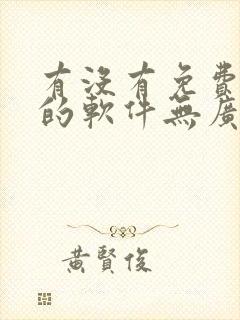 有沒有免費
的軟件無廣
黃賢俊